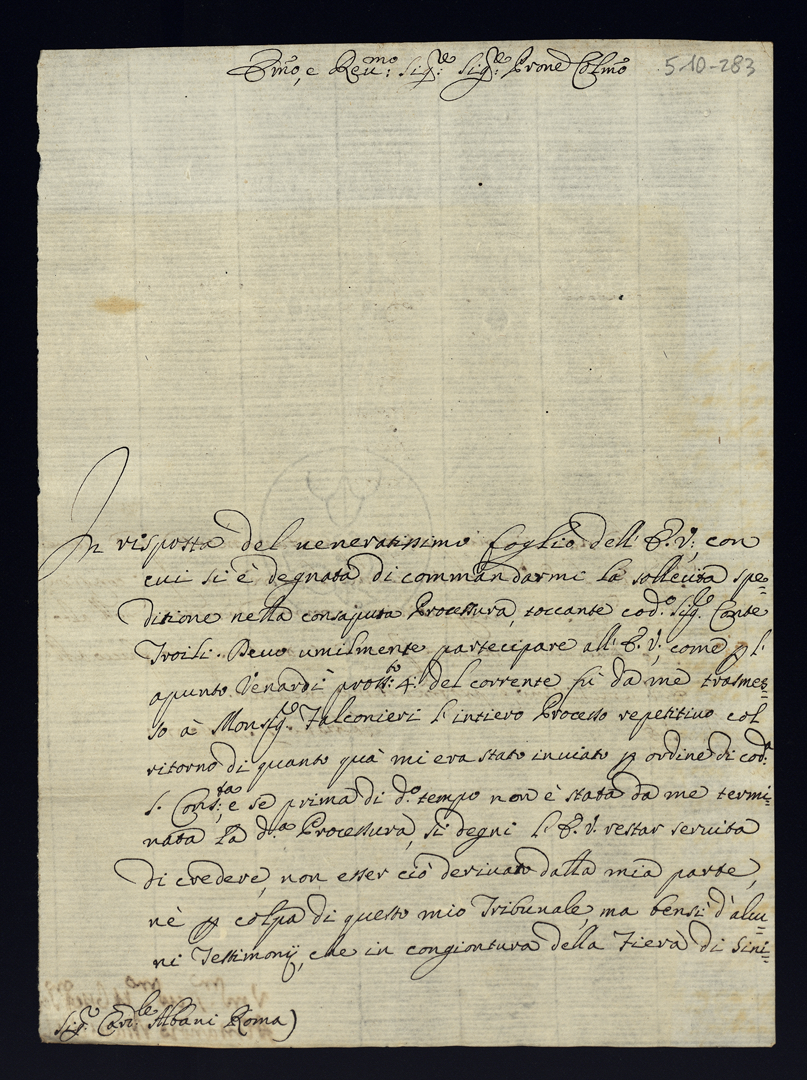 Emo, e Reumo: Sigre: Sigre: Prone Colmo
5-10-283
In risposta del ueneratissimo foglio dell' E. V:, con
cui si è degnata di commandarmi la sollecita spe=
ditione nella consaputa Processura, toccante cod.o Sig.r Conte
Troili. Deuo umilmente partecipare all' E. V:, come p l'
apunto Venardì pross:o 4: del corrente fù da me trasmes=
so à Monsig.r Falconieri l' intiero Processo repetitiuo col
ritorno di quanto quà mi era stato inuiato p ordine di cod:a
S. Cons:ta, e se prima di d.o tempo non è stata da me termi=
nata la d.a Processura, si degni l' E. V. restar seruita
di credere, non esser ciò deriuato dalla mia parte,
nè p colpa di questo mio Tribunale, ma bensì d'alcu=
ni Testimonij, che in congiontura della Fiera di Sini=
Sig.r Card.le Albani Roma)